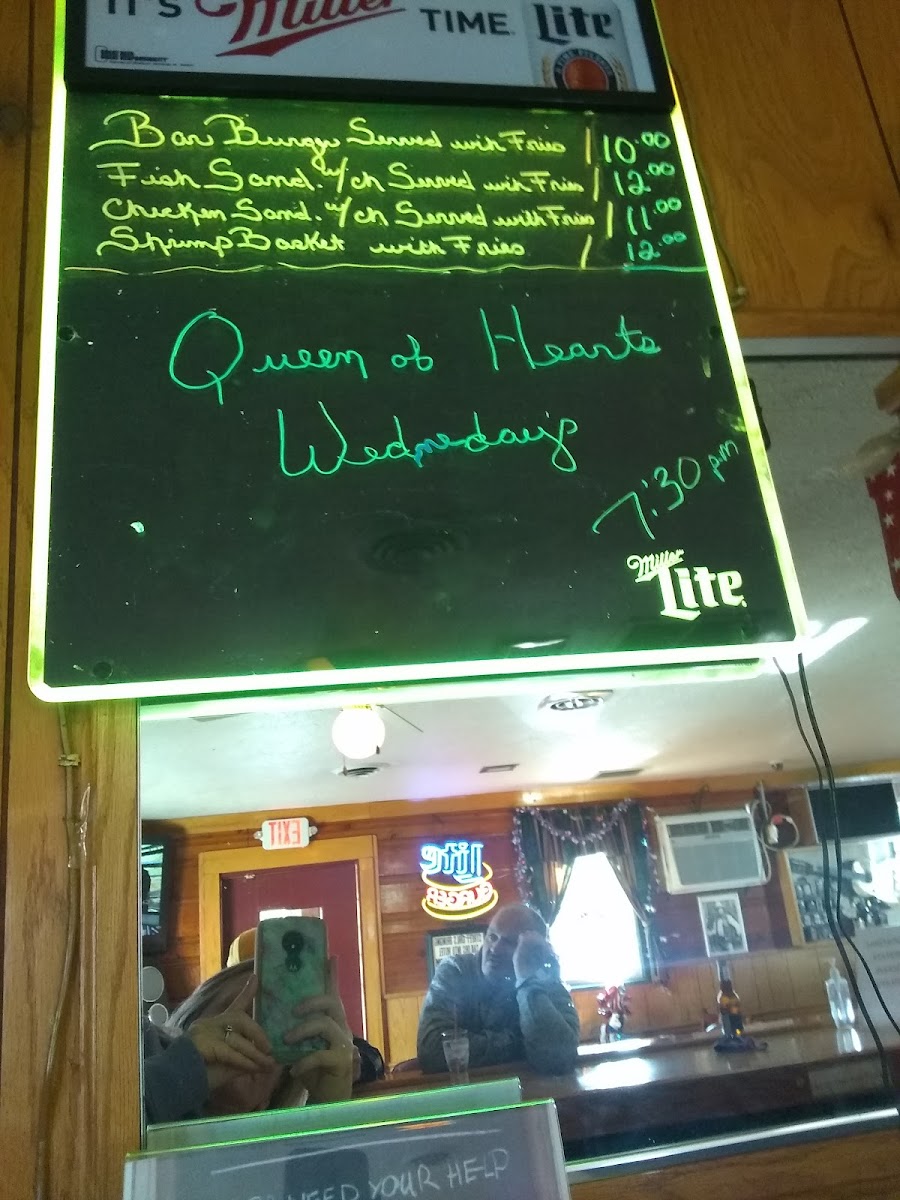 IT'S Miller TIME.
Lite
Bar Burger Served with Fries | 10.00
Fish Sand. w/ch Served with Fries | 12.00
Chicken Sand. w/ch. Served with Fries | 11.00
Shrimp Basket with Fries | 12.00
Queen of Hearts
Wednesday's
7:30 pm
Miller
Lite
EXIT
Lite
NEED YOUR HELP